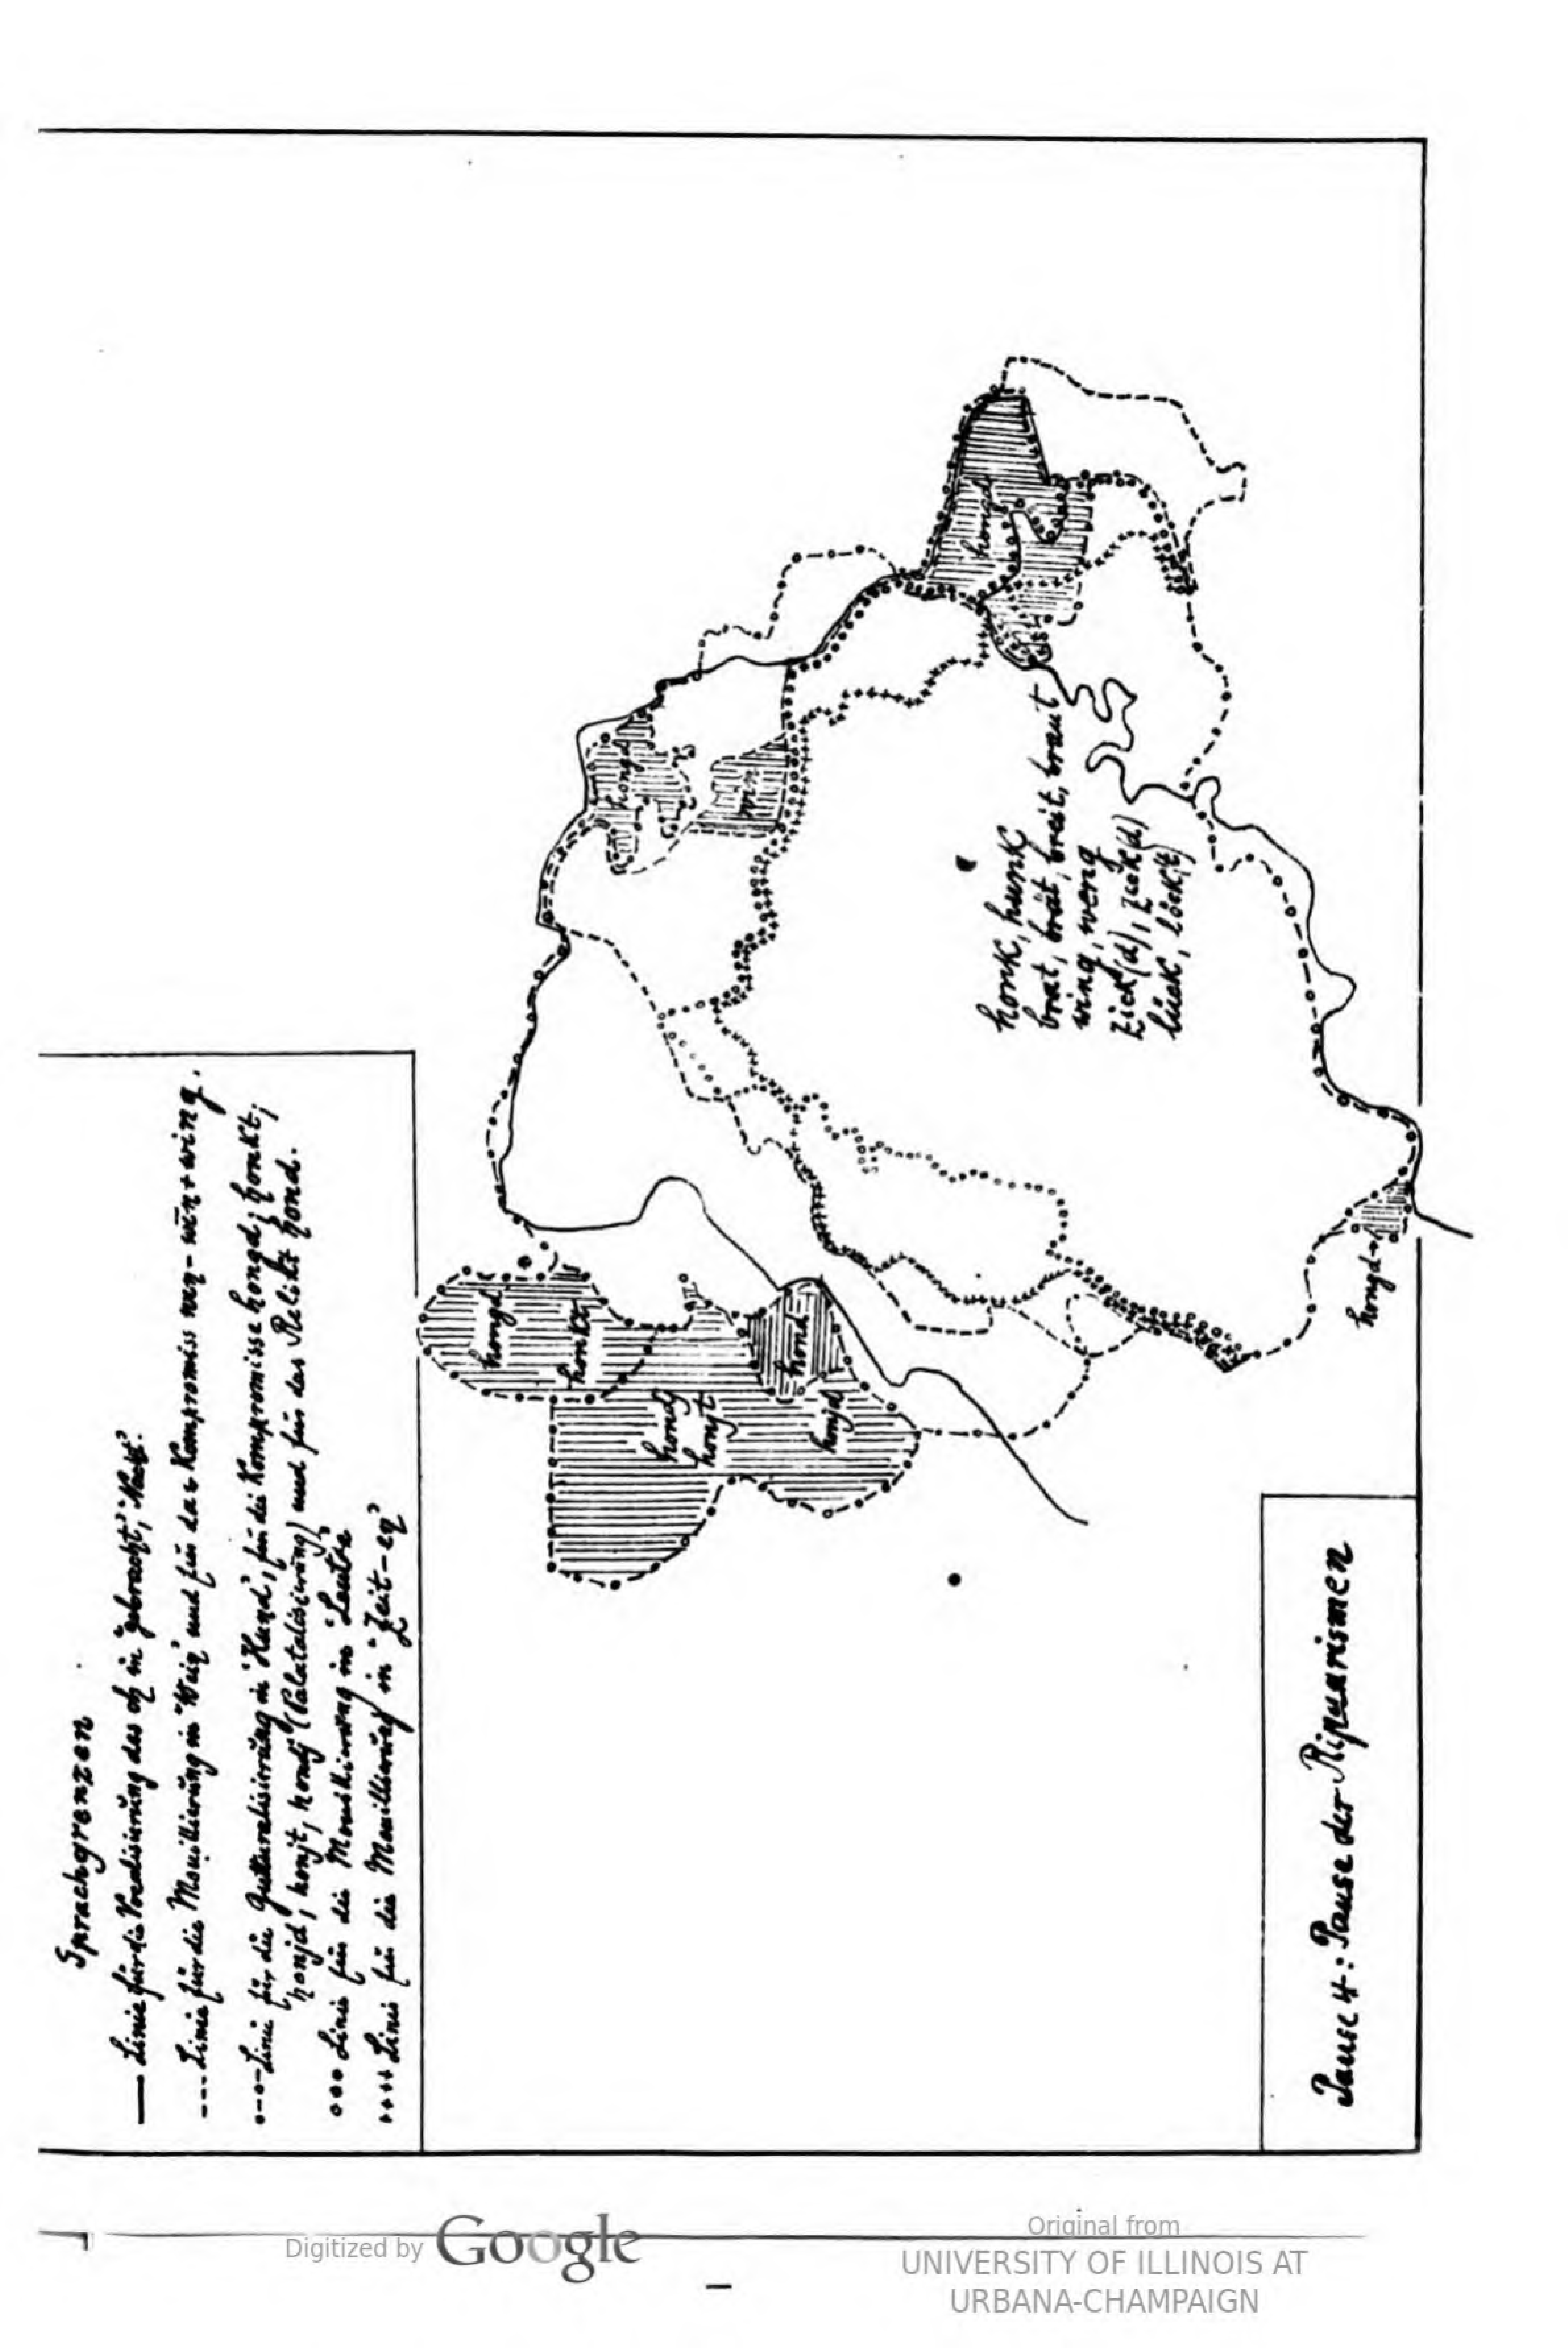 Sprachgrenzen
— Linie für die Vocalisierung des ch in 'gebracht', 'Nacht'.
--- Linie für die Mouillierung in 'Wein' und für das Kompromiss
o-o- Linie für die Gutturalisierung in 'Hund', für die Kompromisse hongd, honkt,
honjd, honjt, hondj (Palatalisierung) und für das Relikt hond.
ooo Linie für die Mouillierung in 'Leute'
++++ Linie für die Mouillierung in 'Zeit-en'
hongd
honkt
hondj
honjt
honjd
hond
hongd
win
hongd
honk, hunk
brat, brät, breit, braut
wing, weng
zick(d), zück(d)
lück, löck(t)
hongd→
Pause 4: Pause der Ripuarismen
Digitized by Google
Original from
UNIVERSITY OF ILLINOIS AT
URBANA-CHAMPAIGN